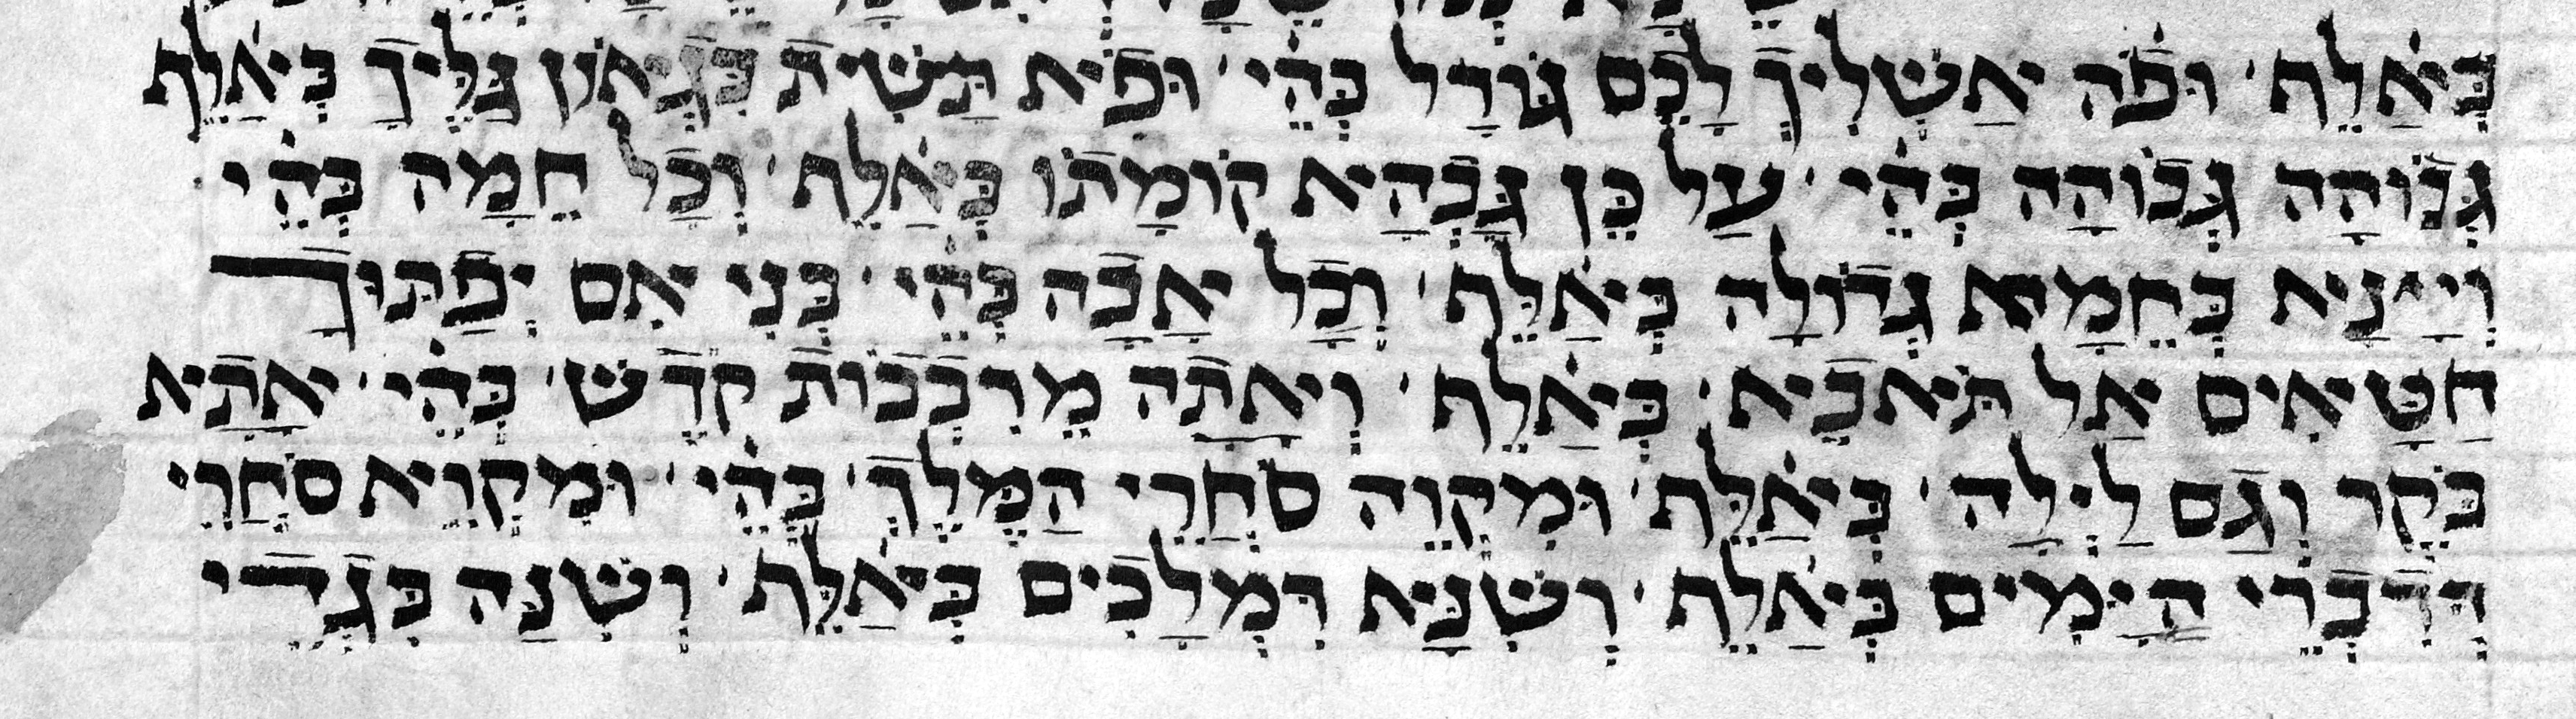 בְּאַלֵף· וּפֹה אַשְׁלִיךְ לָכֶם גּוֹרָל בְּהֵי· וּפֹא תָּשִׁית בִּגְאוֹן גַּלֶּיךָ בְּאַלֵף
גְּבוֹהָה גְּבוֹהָה בְּהֵי· עַל כֵּן גָּבְהָא קוֹמָתוֹ בְּאַלֵף· וְכָל חֵמָה בְּהֵי·
וְיָצָא בְּחֵמָא גְדוֹלָה בְּאַלֵף· וְכָל אָבָה בְּהֵי· בְּנִי אִם יְפַתּוּךָ
חַטָּאִים אַל תֹּאבֵא· בְּאַלֵף· וְאָתָה מֵרִבְבוֹת קֹדֶשׁ· בְּהֵי· אָתָא
בֹקֶר וְגַם לַיְלָה· בְּאַלֵף· וּמִקְוֵה סֹחֲרֵי הַמֶּלֶךְ· בְּהֵי· וּמִקְוֵא סֹחֲרֵי
דְּדִבְרֵי הַיָּמִים בְּאַלֵף· וְשִׁנָּא דִּמְלָכִים בְּאַלֵף· וְשִׁנָּה בִּגְדֵי